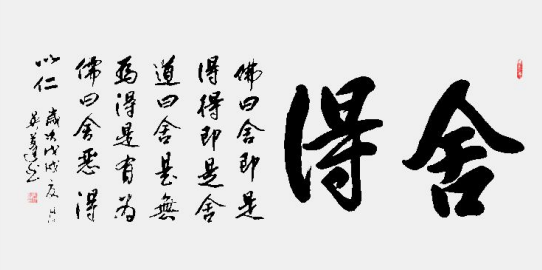 舍得
佛曰舍即是
得得即是舍
道曰舍是無
為得是有为
儒曰舍惡得
以仁
歲次戊戌夏